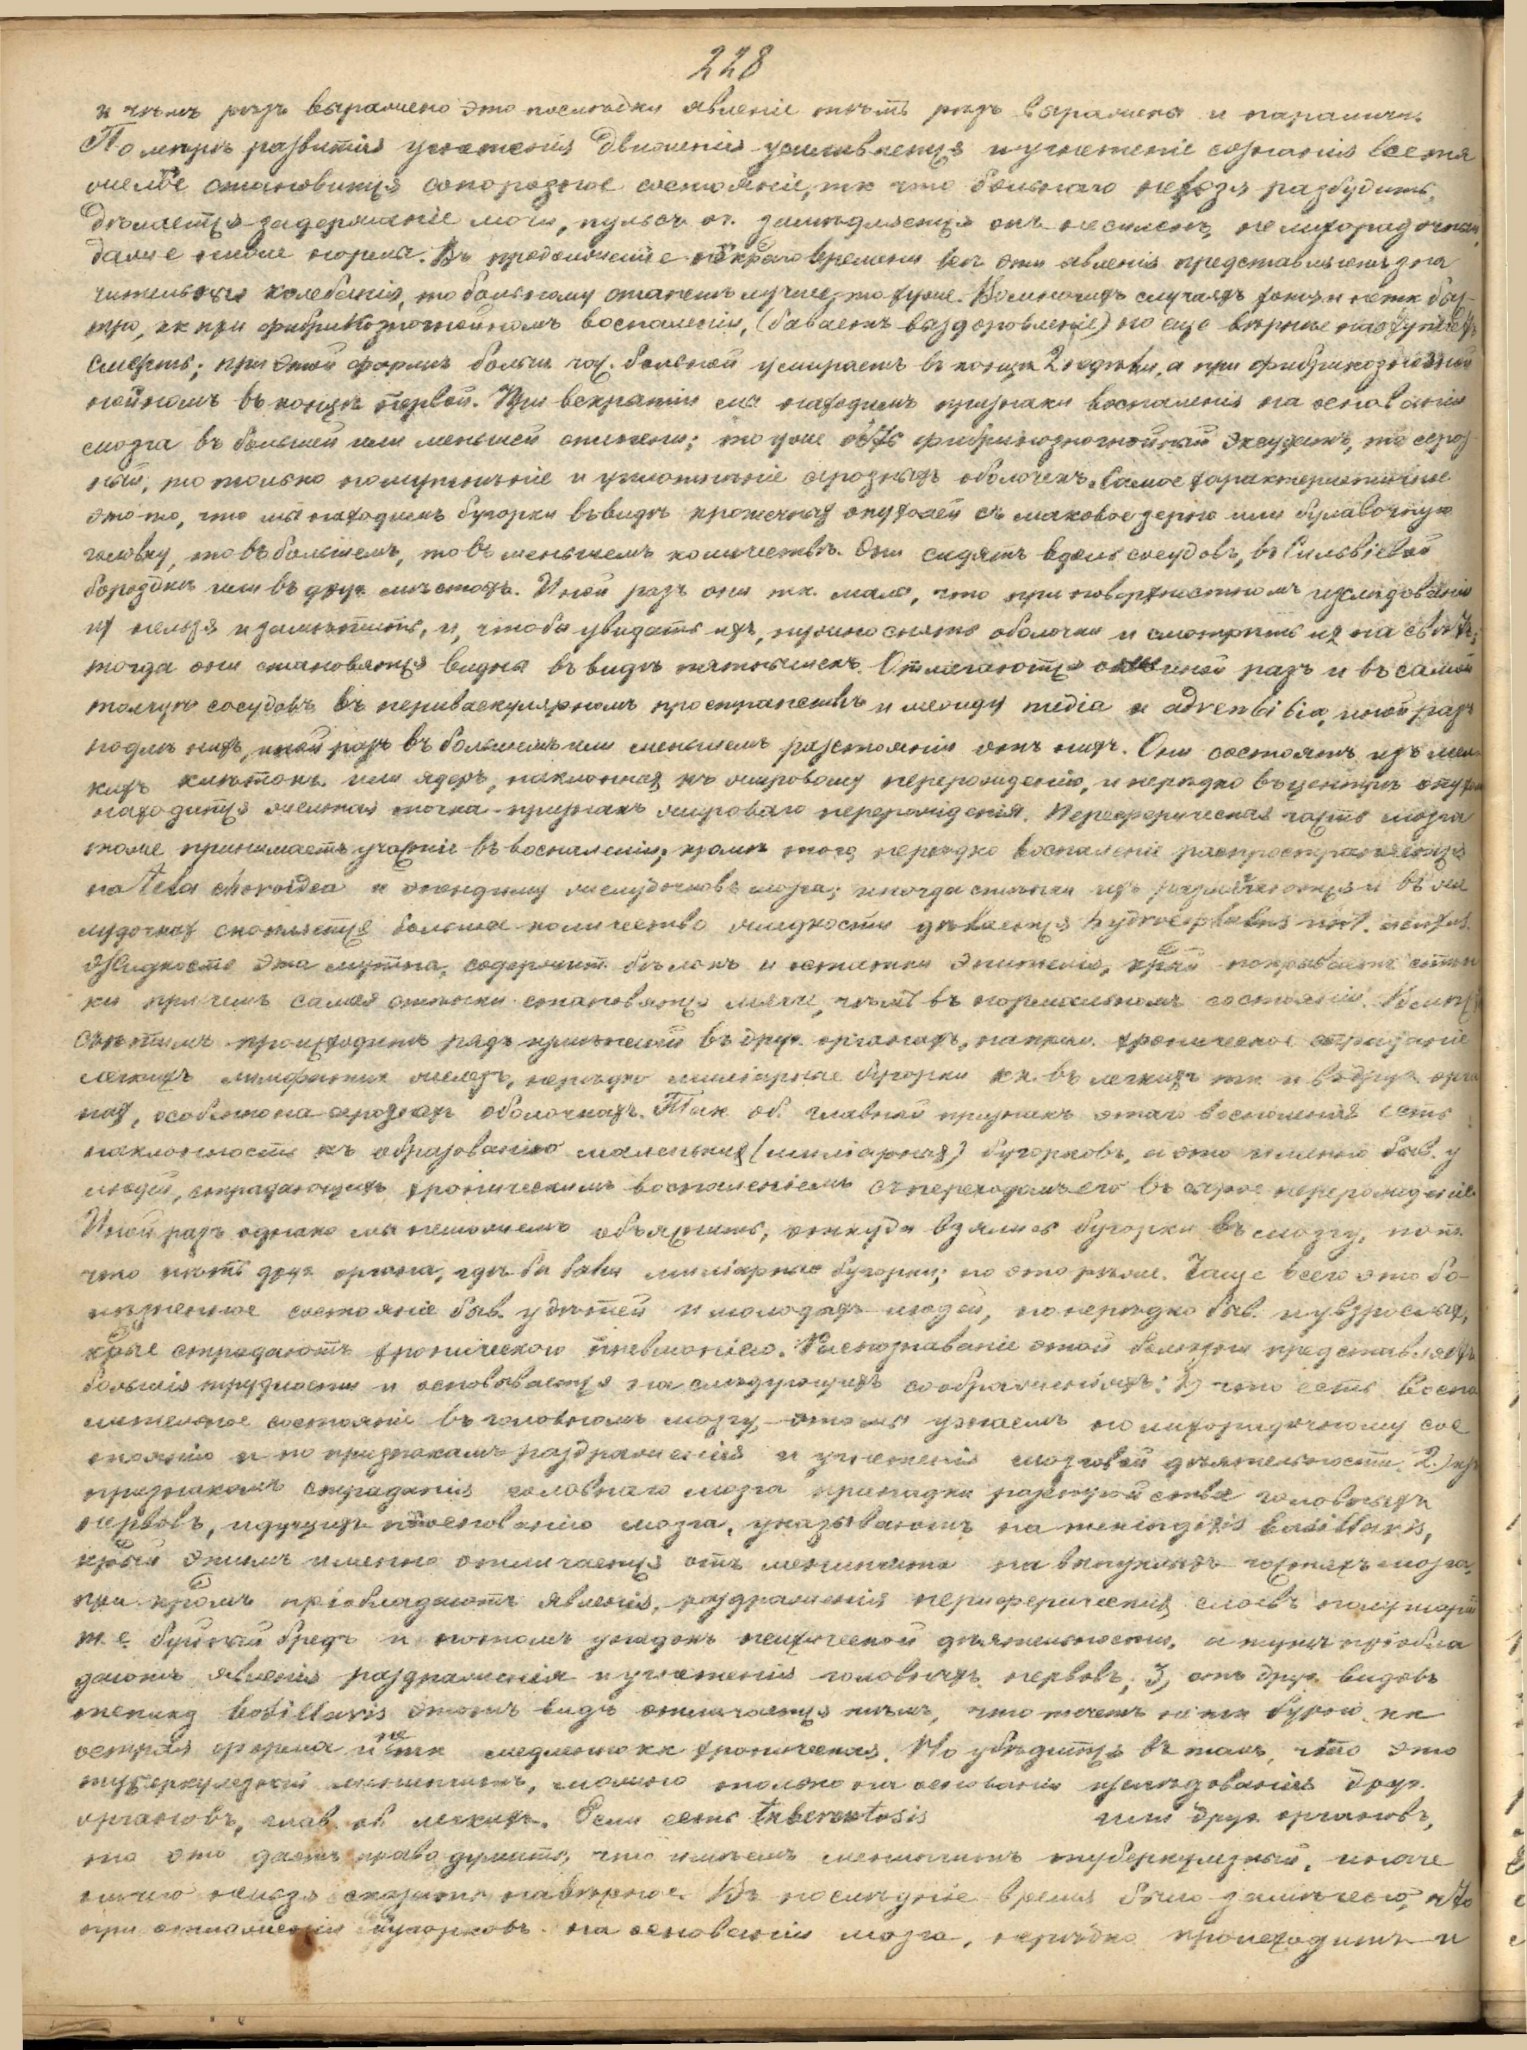 228
и чѣмъ рѣзъ выражено это последнія явленіе тѣмъ рѣзъ выражены и параличи.
По мѣрѣ развитія угнетенія движенія усиливается и угнетеніе сознанія
становится сопорозное состояніе, тк что больного нельзя разбудить,
дѣлается задержаніе мочи, пульсъ оп. замедляется онъ не силенъ, не лихорадочный,
даже ниже нормы. Въ продолженіе нѣкраго времени всѣ эти явленія представляютъ зна
чительныя колебанія, то больному станетъ лучше, то хуже. Во многихъ случаяхъ хотя и не тк быс-
тро, кк при фибринозногнойномъ воспаленіи, (бываетъ выздоровленіе) но еще вѣрнѣе наступаетъ
смерть; при этой формѣ больш. час. больной умираетъ въ концѣ 2 недѣли, а при фибринозног
нойномъ въ концѣ первой. При вскрытіи мы находимъ признаки воспаленія на основаніи
мозга въ большей или меньшей степени; то уже есть фибринозногнойный эксудатъ, то сероз-
ный, то только помутнѣніе и уплотнѣніе серозныхъ оболочекъ. Самое характеристичное
это то, что мы находимъ бугорки въ видѣ крошечныхъ опухолей съ маковое зерно или булавочную
головку, то въ большемъ, то въ меньшемъ количествѣ. Они сидятъ вдоль сосудовъ, въ Сильвіевой
бороздкѣ или въ друг. мѣстахъ. Иной разъ они тк. малы, что при поверхностномъ изслѣдованіи
их нельзя и замѣтить, и, чтобы увидать ихъ, нужно снять оболочки и смотрѣть их на свѣтъ;
тогда они становятся видны въ видѣ пятнышекъ. Отлагаются они иной разъ и въ самой
толщѣ сосудовъ въ периваскулярномъ пространствѣ и между media и adventitia, иной разъ
подлѣ нихъ, иной разъ въ большемъ или меньшемъ разстояніи отъ нихъ. Они состоятъ изъ мел
кихъ клѣтокъ или ядеръ, наклонныхъ къ жировому перерожденію, и нерѣдко въ центрѣ опух
находится желтая точка - признакъ жироваго перерожденія. Периферическая часть мозга
тоже принимаетъ участіе въ воспаленіи; кромѣ того нерѣдко воспаленіе распространяется
на tela choroidea и эпендиму желудочковъ мозга; иногда стѣнки ихъ размягчаются и въ же
лудочках скопляется большое количество жидкости дѣлается hydrocephalus int. acutus.
Жидкость эта мутна, содержит. бѣлокъ и остатки эпителія, крый покрываетъ стѣн
ки при чемъ самыя стѣнки становятся мягче, чѣмъ въ нормальномъ состояніи. Вмѣстѣ
съ этимъ происходитъ рядъ измѣненій въ друг. органахъ, наприм. хроническое страданіе
легкихъ лимфатич желѣзъ, нерѣдко миліарные бугорки кк. въ легкихъ тк и въ друг. орга
нах, особенно на серозныхъ оболочкахъ. Так об. главный признакъ этаго воспаленія есть
наклонность къ образованію маленькихъ (миліарныхъ) бугорковъ, и это именно быв. у
людей, страдающихъ хроническимъ воспаленіемъ съ переходомъ его въ сырное перерожденіе.
Иной разъ однако мы не можемъ объяснить, откуда взялись бугорки въ мозгу, пот.
что нѣтъ друг. органа, гдѣ бы были миліарные бугорки; но это рѣже. Чаще всего это бо-
лѣзненное состояніе быв. у дѣтей и молодыхъ людей, но нерѣдко быв. и у взрослых,
крые страдаютъ хронического пневмоніею. Распознаваніе этой болѣзни представляетъ
большія трудности и основывается на слѣдующихъ соображеніяхъ: 1) что есть воспа
лительное состояніе въ головномъ мозгу, это мы узнаемъ по лихорадочному сос
тоянію и по признакамъ раздраженія и угнетенія мозговой дѣятельности. 2.) къ
признакомъ страданія головнаго мозга припадки разстройства головныхъ
нервовъ, идущихъ по основанію мозга, указываютъ на meningitis basillaris,
крый этимъ именно отличается отъ менингита на выпуклыхъ частяхъ мозга,
при кромъ преобладаютъ явленія, раздраженія периферическихъ слоевъ полушарій
т. е. буйный бредъ и потомъ упадокъ психической дѣятельности, а тутъ преобла
даютъ явленія раздраженія и угнетенія головныхъ нервовъ; 3, отъ друг. видовъ
менинg basillaris этотъ видъ отличается тѣмъ, что течетъ не тк бурно кк
острая форма и не тк медленно кк хроническая. Но убѣдиться въ томъ, что это
туберкулезный менингитъ, можно только на основаніи изслѣдованія друг.
органовъ, глав. об. легкихъ. Если есть tuberculosis или друг. органовъ,
то это даетъ право думать, что имѣемъ менингитъ туберкулезный, иначе
ничего нельзя сказать навѣрное. Въ послѣдніе время было замѣчено, что
при отложеніи бугорковъ на основаніи мозга, нерѣдко происходитъ и